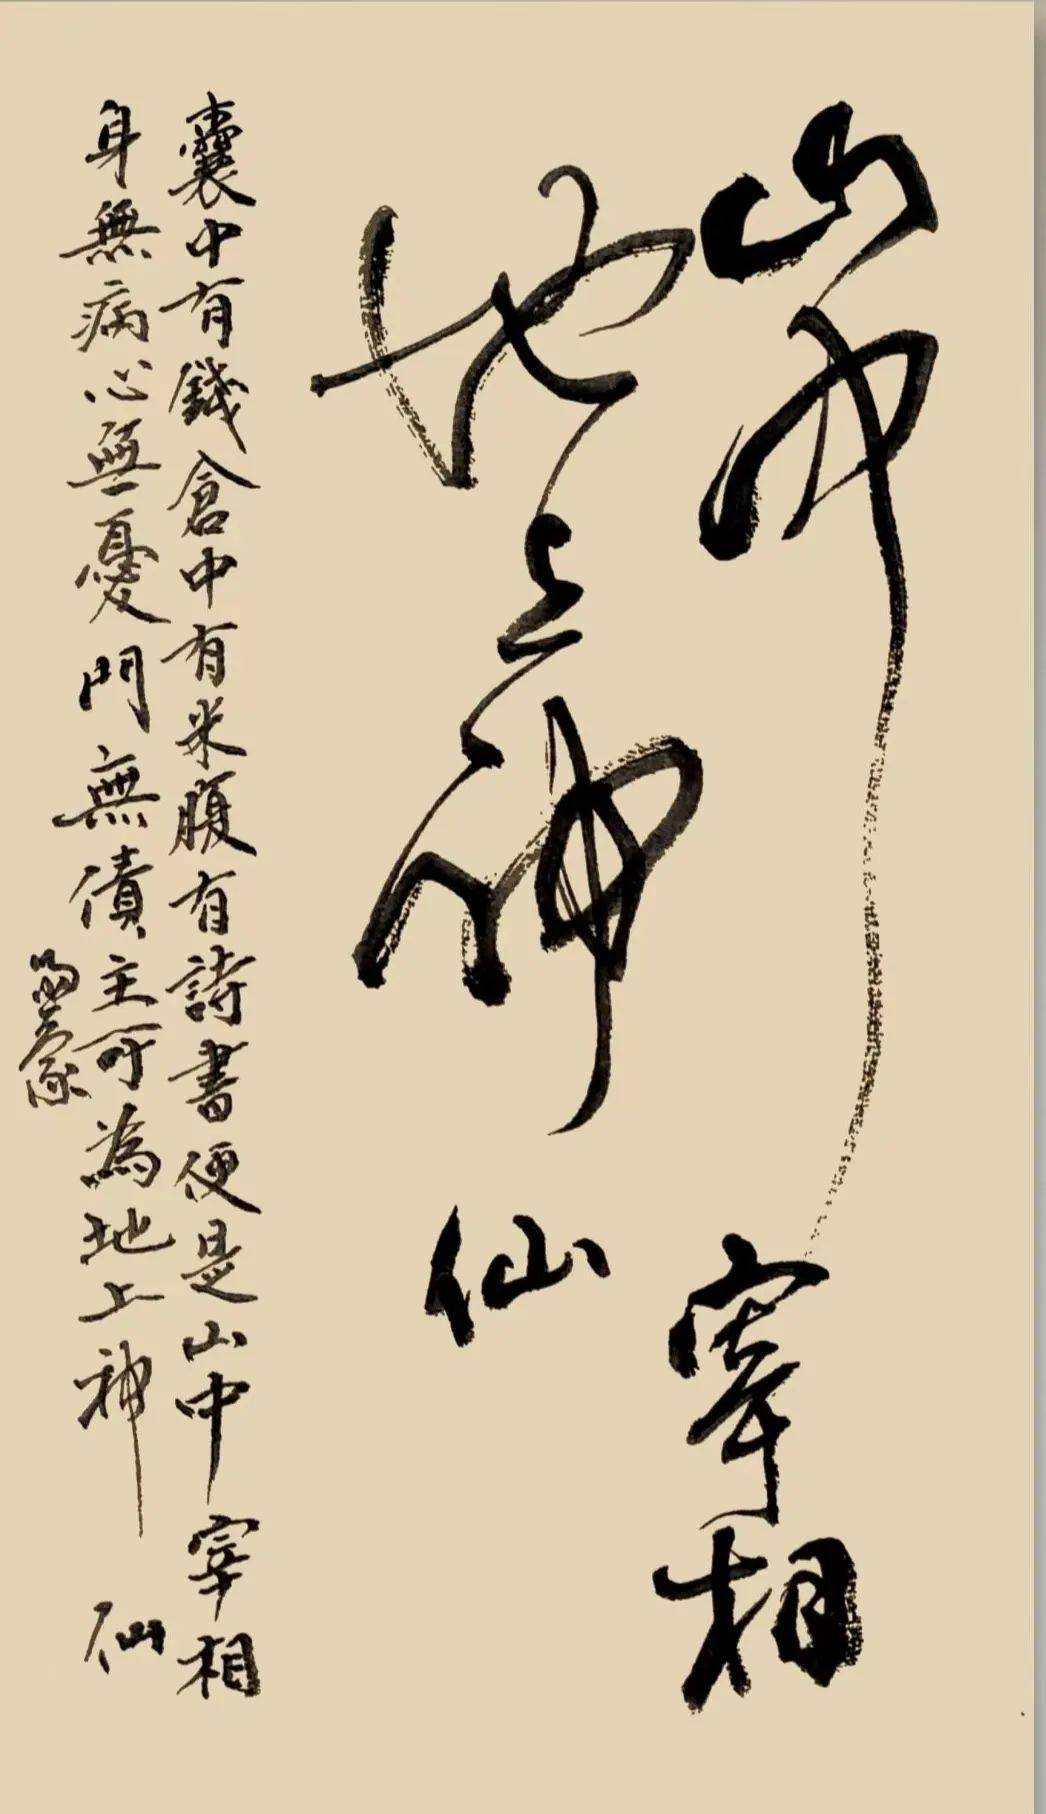 山中宰相
地上神仙
囊中有錢倉中有米腹有詩書便是山中宰相
身無病心無憂門無債主可為地上神仙